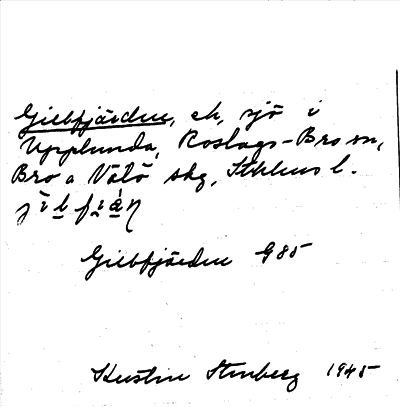 Gillfjärden, ek, sjö i
Upplunda, Roslags-Bro sn,
Bro o Vätö skg, Sthlms l.
Gillfjärden G85
Kerstin Stenberg 1945